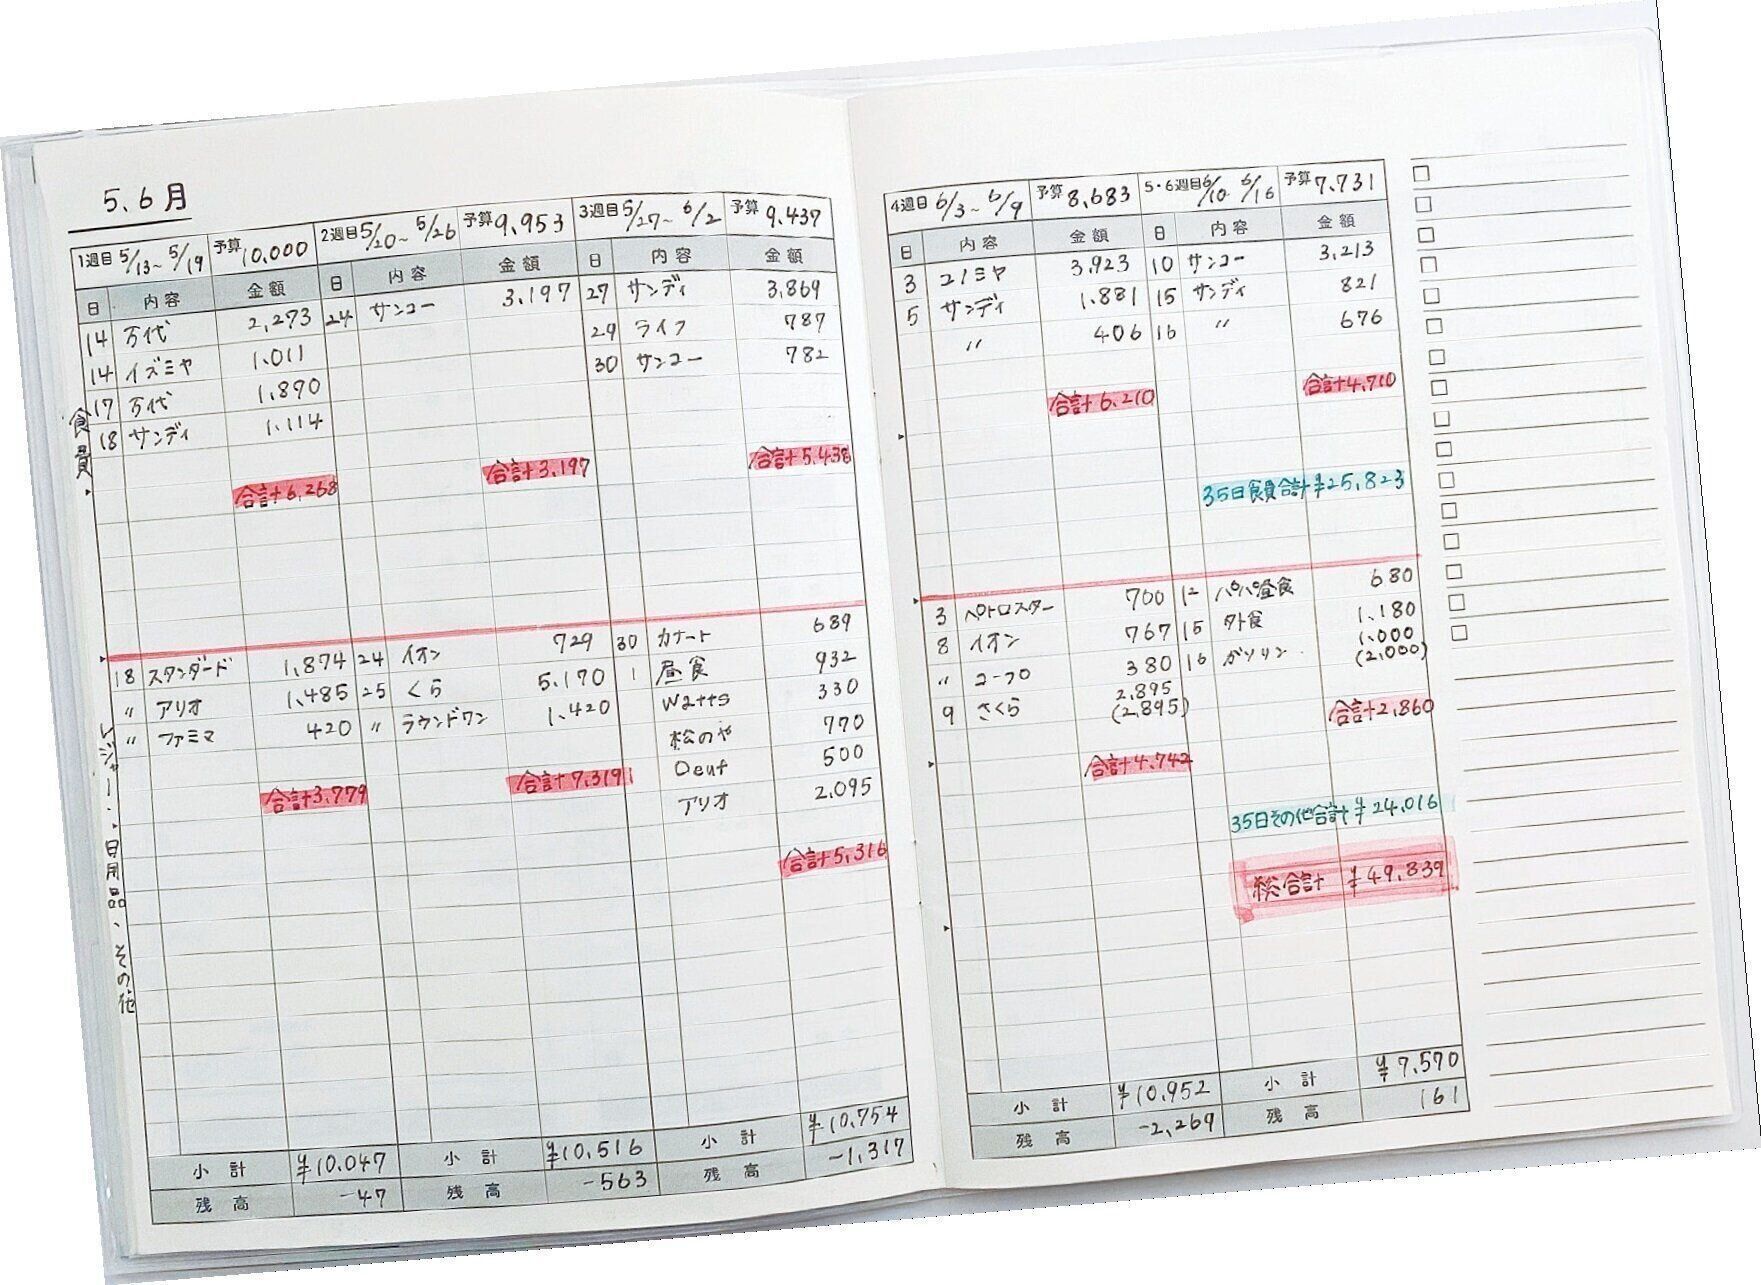 5.6月
1週目 5/13~5/19 予算 10,000
日 内容 金額
14 万代 2,273
14 イズミヤ 1,011
17 万代 1,870
18 サンディ 1,114
食費・
合計 6,268
18 スタンダード 1,874
〃 アリオ 1,485
〃 ファミマ 420
合計 3,779
レジャー・日用品、その他
小計 ¥10,047
残高 -47
2週目 5/20~5/26 予算 9,953
日 内容 金額
24 サンコー 3,197
合計 3,197
24 イオン 729
25 くら 5,170
〃 ラウンドワン 1,420
合計 7,319
小計 ¥10,516
残高 -563
3週目 5/27~6/2 予算 9,437
日 内容 金額
27 サンディ 3,869
29 ライフ 787
30 サンコー 782
合計 5,438
30 カナート 689
1 昼食 932
Watts 330
松のや 770
Deuf 500
アリオ 2,095
合計 5,316
小計 ¥10,754
残高 -1,317
4週目 6/3~6/9 予算 8,683
日 内容 金額
3 コノミヤ 3,923
5 サンディ 1,881
〃 406
合計 6,210
3 ペトロスター 700
8 イオン 767
〃 コープロ 380
9 さくら 2,895
(2,895)
合計 4,742
小計 ¥10,952
残高 -2,269
5・6週目 6/10 6/16 予算 7,731
日 内容 金額
10 サンコー 3,213
15 サンディ 821
16 〃 676
合計 4,710
35日食費合計 ¥25,823
12 パパ昼食 680
15 外食 1,180
16 ガソリン 1,000
(2,000)
合計 2,860
35日その他合計 ¥24,016
総合計 ¥49,839
小計 ¥7,570
残高 161